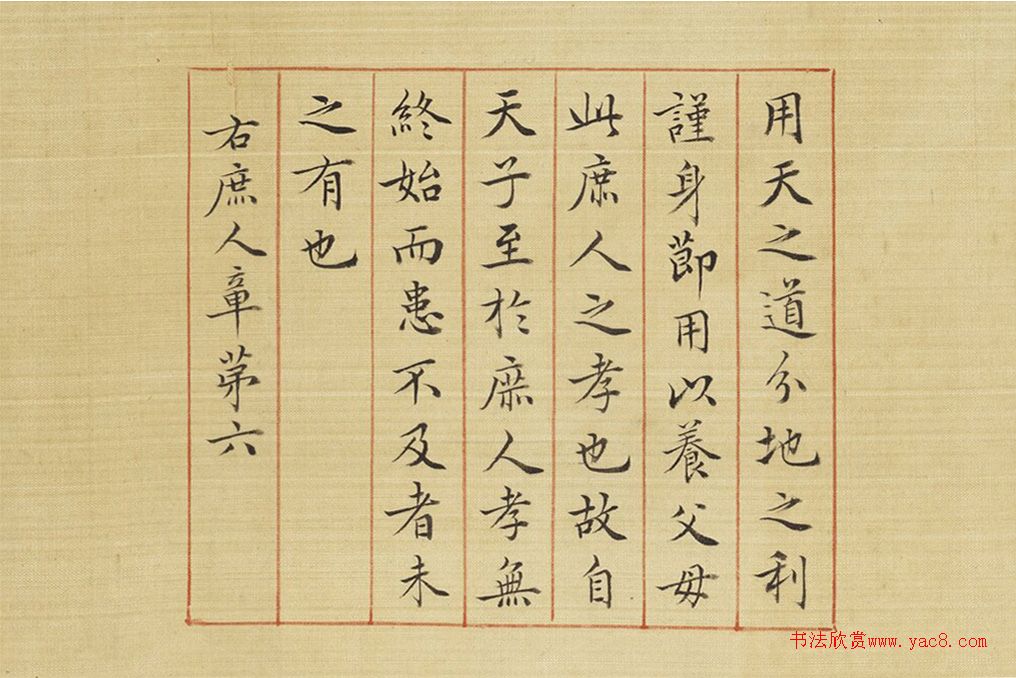 用天之道分地之利
謹身節用以養父母
此庶人之孝也故自
天子至於庶人孝無
終始而患不及者未
之有也
右庶人章苐六
书法欣赏www.yac8.com